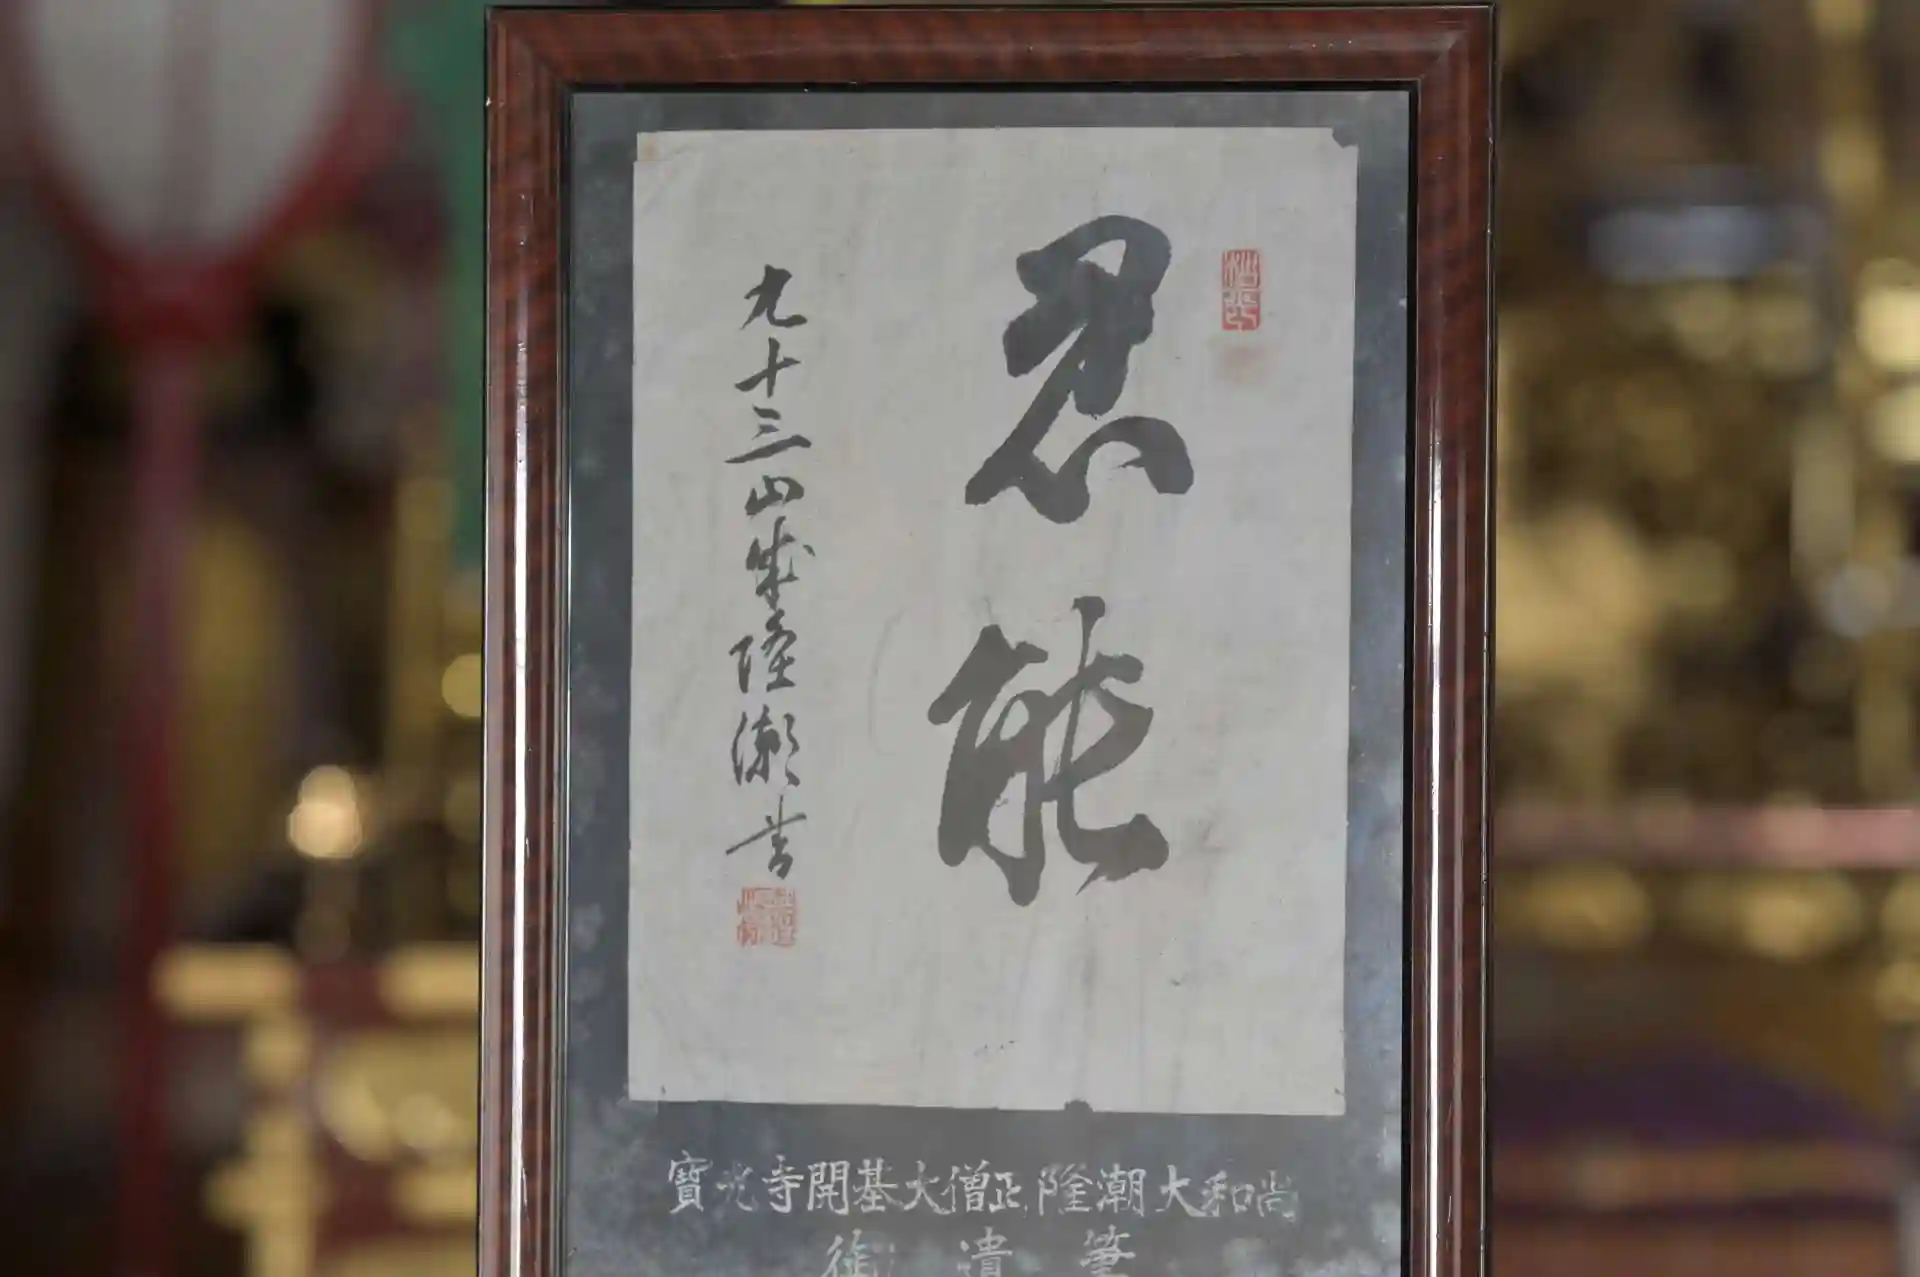 忍能
九十三山歳隆潮書
寶光寺開基大僧正隆潮大和尚
御遺筆